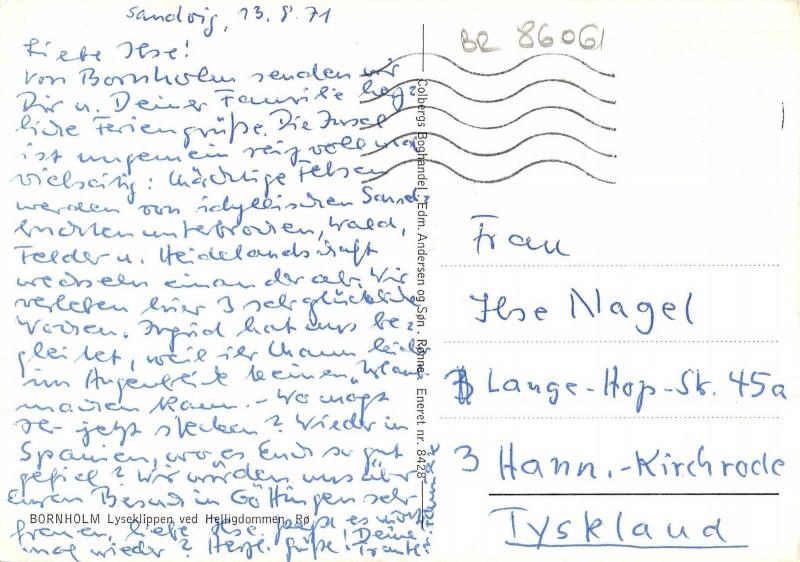 Sandvig, 13. 8. 71
Liebe Ilse!
Von Bornholm senden wir
Dir u. Deiner Familie herz=
liche Feriengrüße. Die Insel
ist ungemein reizvoll und
vielseitig: Mächtige Felsen
werden von idyllischen Sand=
buchten unterbrochen, Wald,
Felder u. Heidelandschaft
wechseln einander ab. Wir
verleben hier 3 sehr glückliche
Wochen. Ingrid hat uns be=
gleitet, weil ihr Mann leider
im Augenblick keinen Urlaub
machen kann. - Wo mögt
Ihr jetzt stecken? Wieder in
Spanien, wo es Euch so gut
gefiel? Wir würden uns über
Euren Besuch in Göttingen sehr
freuen, liebe Ilse.
mal wieder? Herzl. Grüße! Deine
BORNHOLM Lyseklippen ved Helligdommen, Rø
Colbergs Boghandel. Edm. Andersen og Søn. Rønne. Eneret nr. 8428
BR 86061
Frau
Ilse Nagel
Lange-Hop-Str. 45a
3 Hann.-Kirchrode
Tyskland